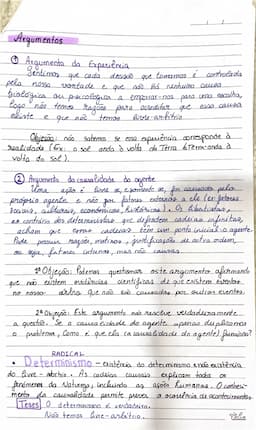 Argumentos
① Argumento da Experiência
Sentimos que cada decisão que tomamos é controlada
pela nossa vontade e que não há nenhuma causa
biológica ou psicológica a empurrar-nos para uma escolha,
logo não temos razões para acreditar que essa causa
existe e que não temos livre-arbítrio
Objeção: não sabemos se essa experiência corresponde à
realidade (Ex: o sol anda à volta da Terra à
volta do Sol).
② Argumento da causalidade do agente
Uma ação é livre se, e somente se, for causada pelo
próprio agente e não por fatores externos a ele (ex: fatores
sociais, culturais, económicos, históricos). Os libertistas,
ao contrário dos deterministas que defendem cadeias infinitas,
acham que essas cadeias têm um ponto inicial: o agente.
Pode possuir razões, motivos, justificações de outra ordem,
ou seja, fatores internos, mas não causas.
1ª Objeção: Podemos questionar este argumento afirmando
que não existem evidências científicas de que existem eventos
no nosso que não são causados por outros eventos.
2ª Objeção: Este argumento não resolve verdadeiramente
a questão. Se a causalidade do agente apenas
o problema, Como é que ela (a causalidade do agente) funciona?
RADICAL
• Determinismo - existência do determinismo e não existência
do livre-arbítrio. As cadeias causais explicam todos os
fenómenos da Natureza, incluindo as ações humanas. O conheci-
mento da causalidade permite prever a ocorrência de acontecimentos.
Teses O determinismo é verdadeiro.
Não temos livre-arbítrio.